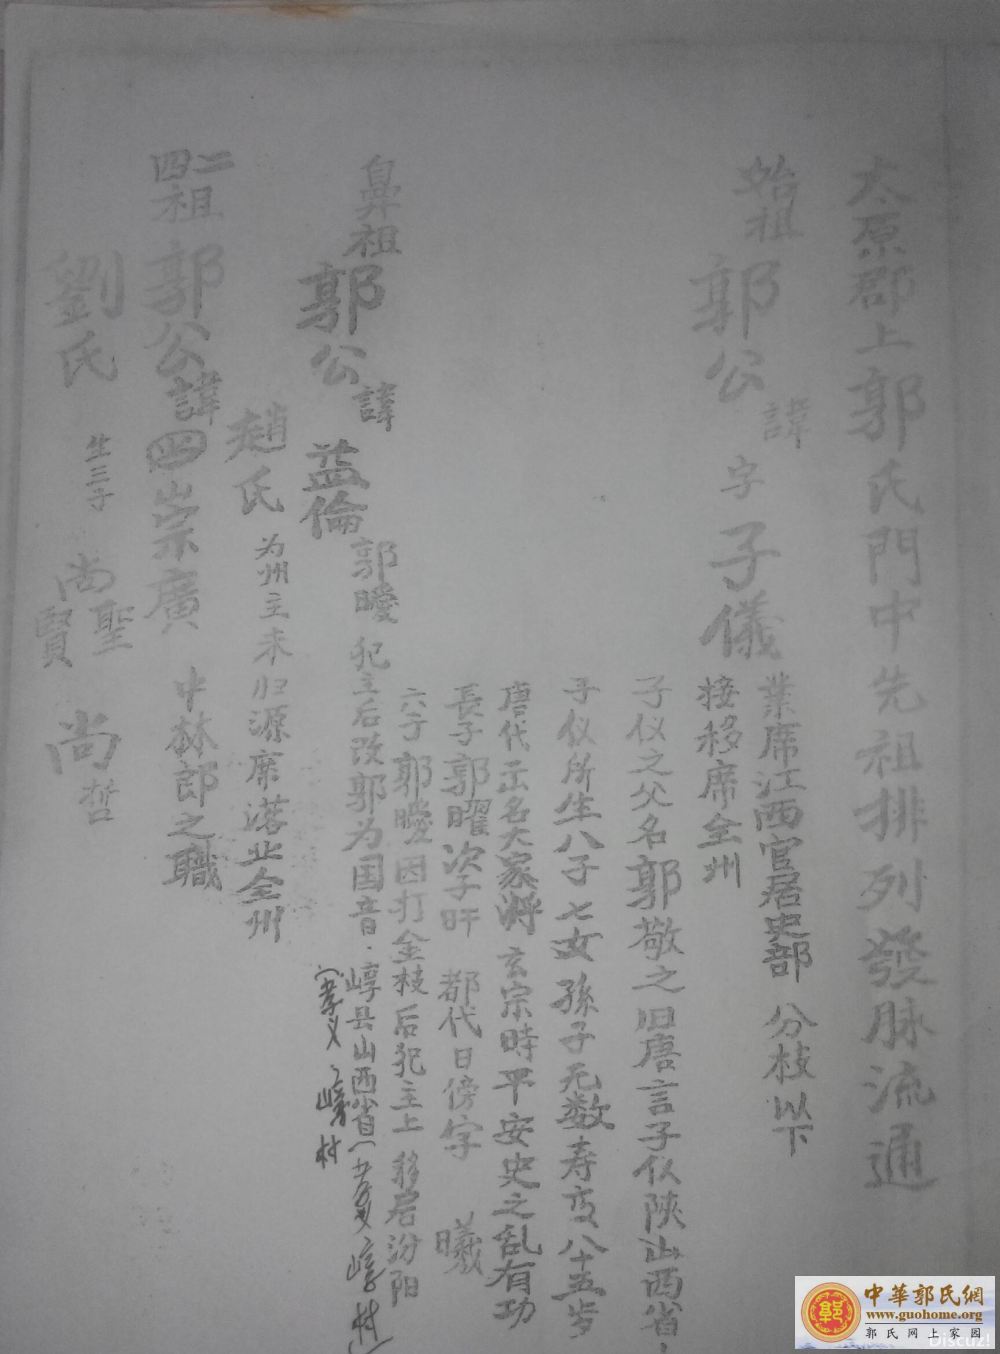 太原郡上郭氏門中先祖排列發脉流通
始祖郭公諱字子儀
業席江西官居吏部 分枝以下
接移席全州
子仪之父名郭敬之旧唐言子仪陝山西省
子仪所生八子七女孫子无数寿 八十五岁
唐代出名大家將玄宗時平安史之乱有功
長子郭曜次子旰 都代日傍字 曦
六子郭曖因打金枝后犯主上移居汾阳
鼻祖郭公諱益倫
郭曖犯主后改郭为国音.崞县山西省(孝义崞村)
(孝义崞村
趙氏 为州主未归源席落业全州
二四祖郭公諱四崇廣 中林郎之職
劉氏 生三子 尚聖賢 尚哲
中華郭氏網
www.guohome.org
郭氏网上家园
Discuz!